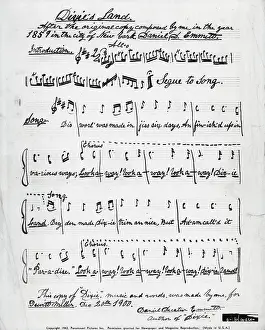 Dixie's Land.
After the original copy composed by me, in the year
1859 in the city of New York Daniel D. Emmett.
Allo
Introduction
Segue to Song.
Song.
Dis worl' was made in jiss six days, An fin-ish'd up in
Chorus
va-rious ways; Look a-way! look a-way! look a-way! Dix-ie
Song
Land. Dey den made Dix-ie trim an nice, But Adam call'd it
Chorus.
Par-a-dise. Look a-way! look a-way! look a-way! Dix-ie Land
This copy of "Dixie," music and words, was made by me, for
Dewitt Miller, 1900.
Daniel Decatur Emmett,
Author of "Dixie."
Copyright 1943, Paramount Pictures Inc. Permission granted for Newspaper and Magazine Reproduction. (Made in U.S.A.)